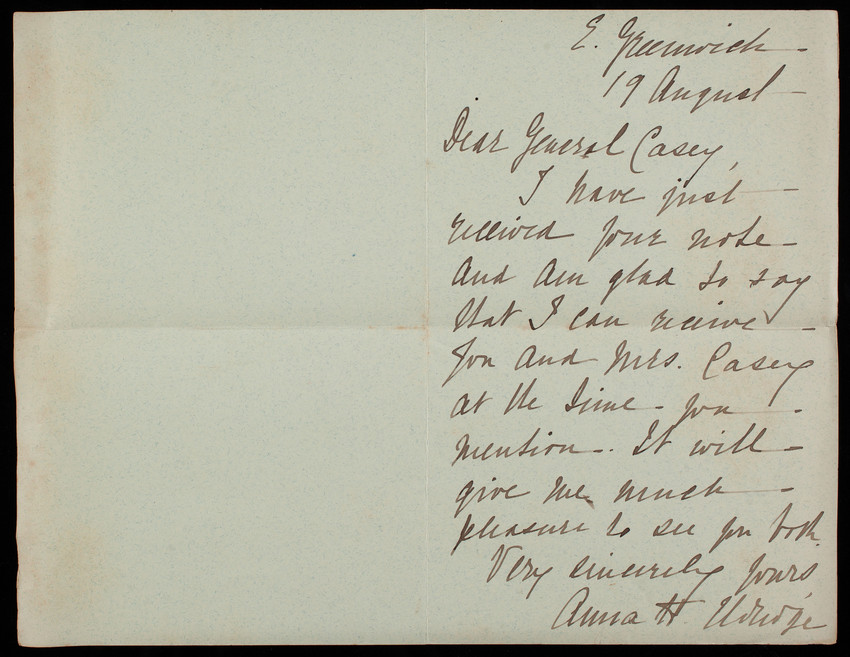 E. Greenwich -
19 August -
Dear General Casey,
I have just -
received your note -
and am glad to say
that I can receive -
you and Mrs. Casey
at the time - you -
mention -. It will -
give me much -
pleasure to see you both.
Very sincerely yours
Anna H. Eldredge